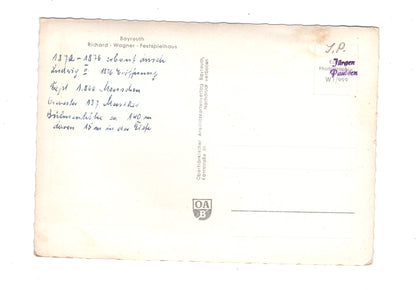 Bayreuth
Richard - Wagner - Festspielhaus
1872 - 1876 erbaut durch
Ludwig II 1876 Eröffnung
Faßt 1.800 Menschen
Orchester 137 Menschen
Bühnenhöhe ca 140 m
davon 15 m in der Tiefe
S.P.
Jürgen
Paulsen
W 1/999
Oberfränkischer Ansichtskartenverlag Bayreuth,
Kantstraße 31
Nachdruck verboten
OA
B